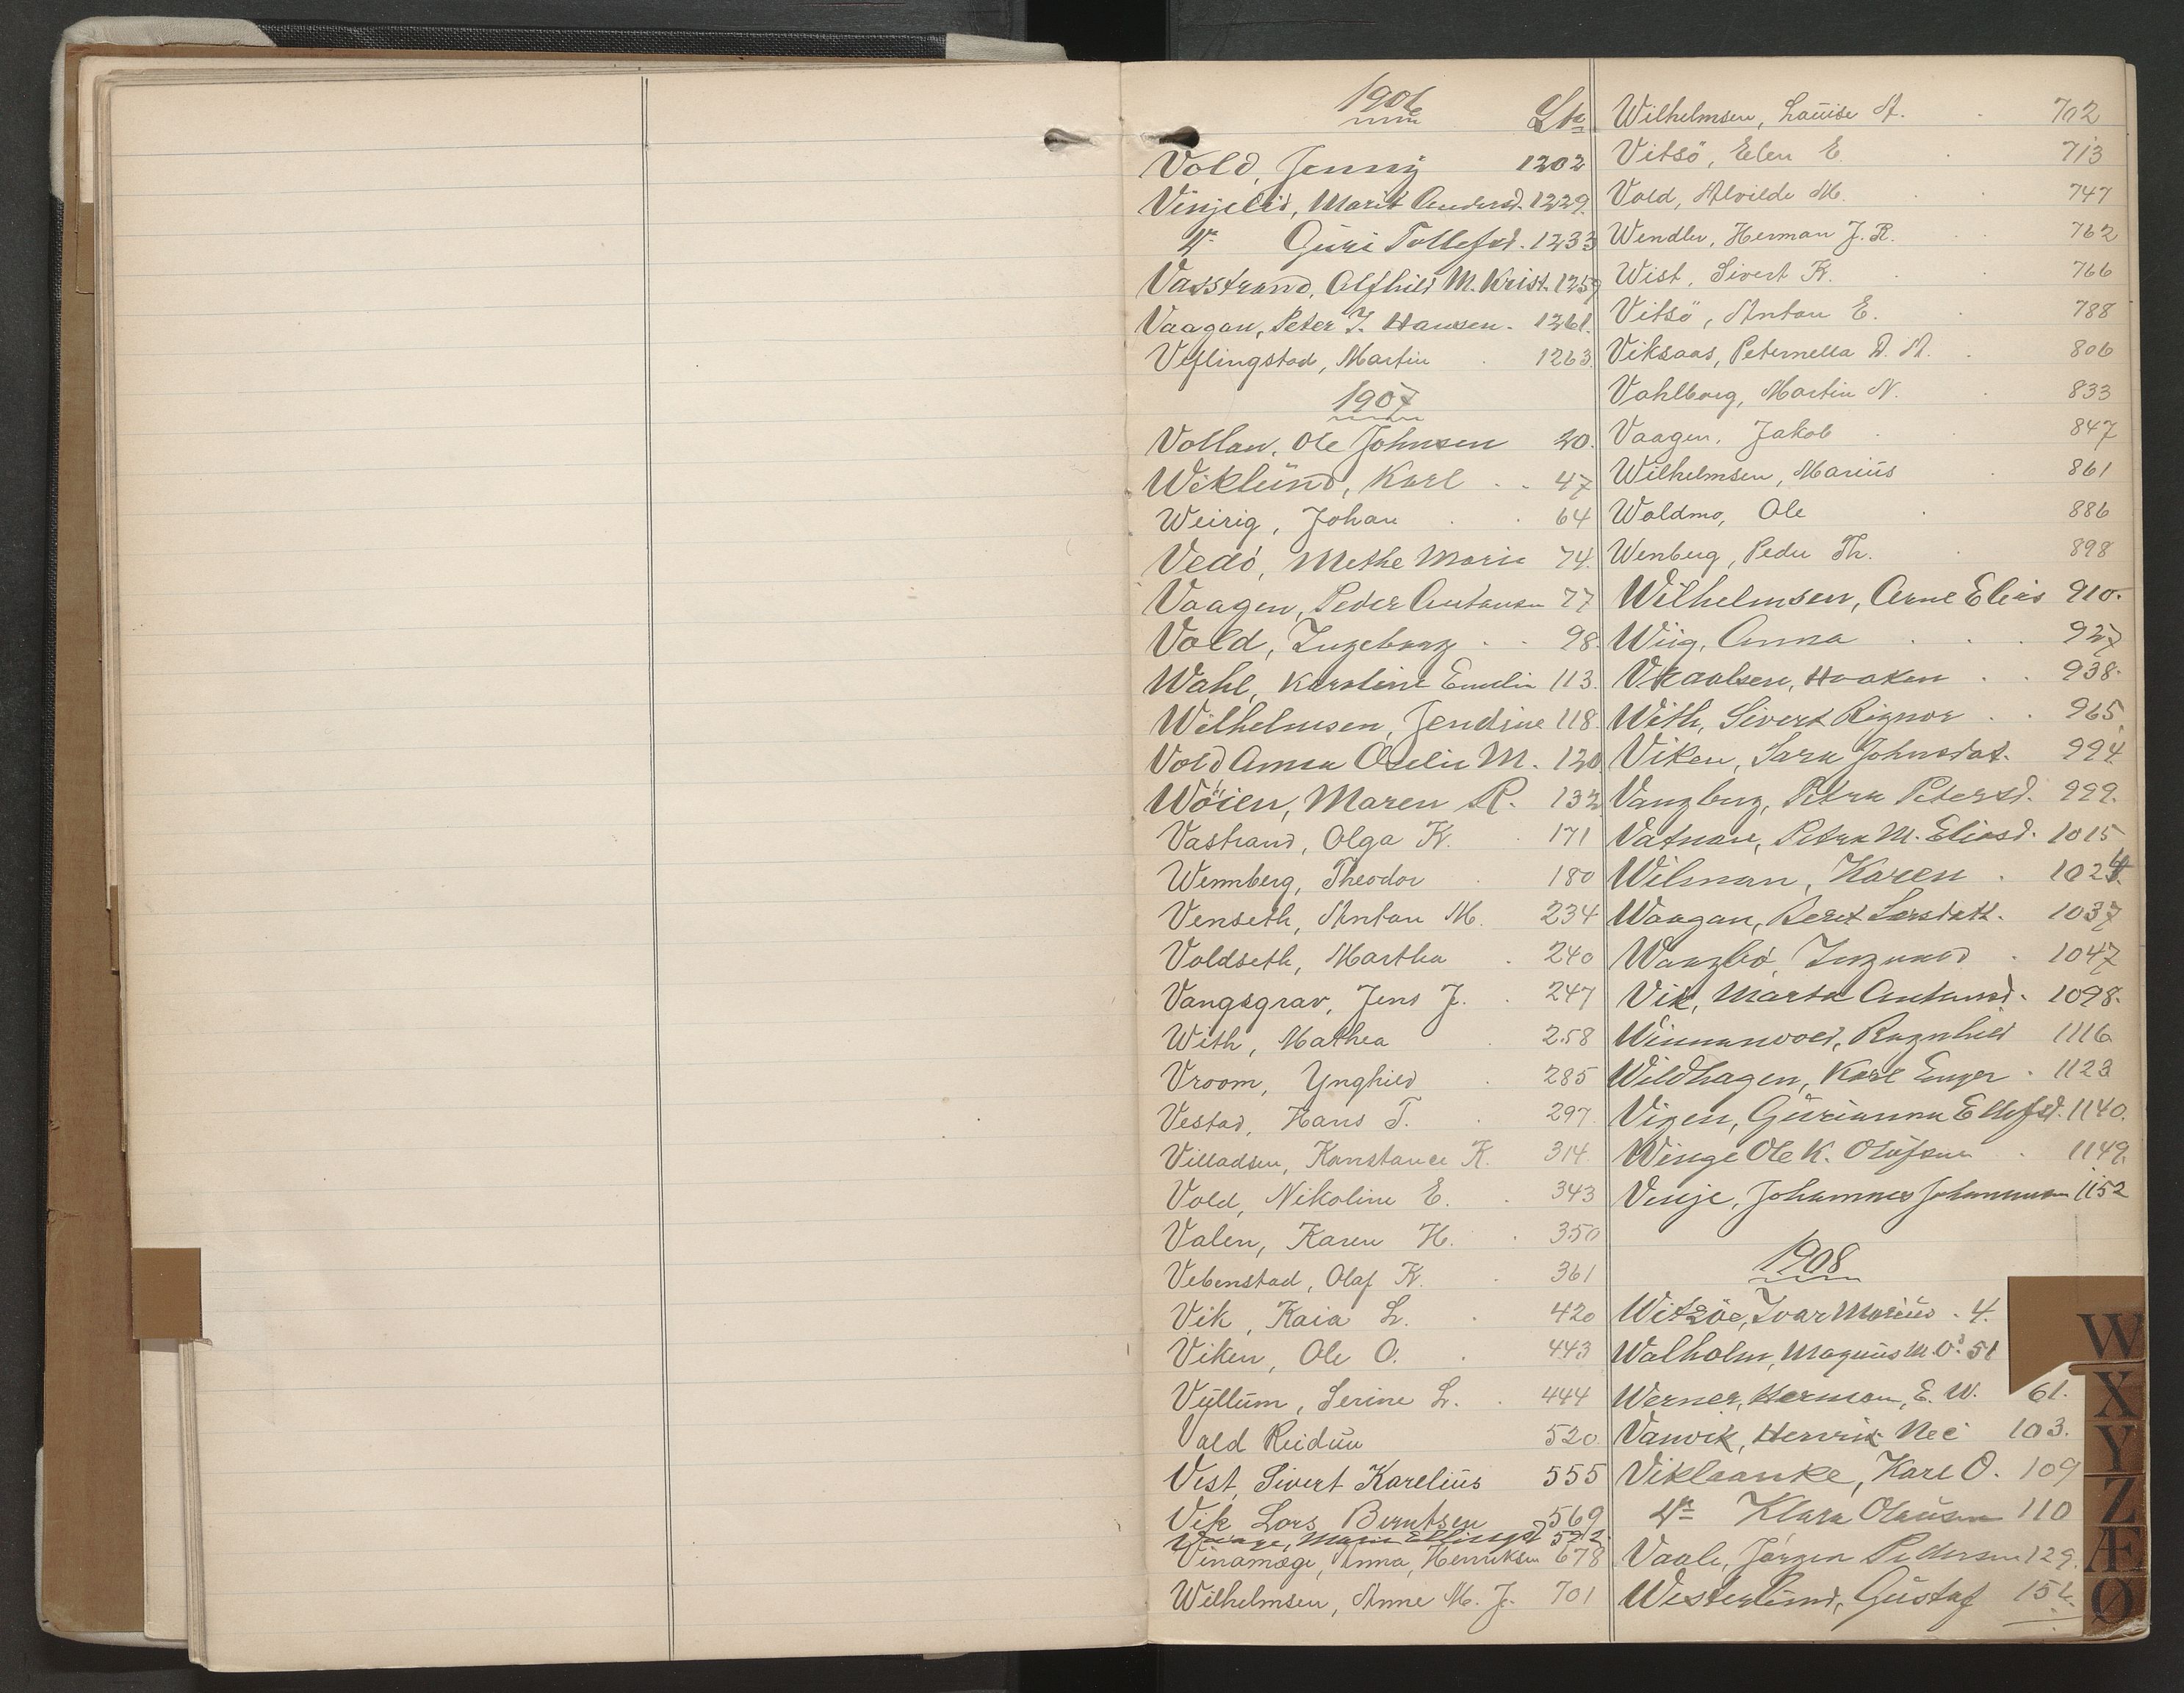 1906
Vold, Jenny 1202
Vinjelid, Marit Andersd. 1229.
Guri Tollefsd. 1233
Vasstrand, Alfhild M. Krist. 1259
Vaagan, Peter J. Hansen. 1261.
Veflingstad, Martin 1263.
1907
Vollan, Ole Johnsen 20.
Wiklund, Karl 47
Weirig, Johan 64
Vedö, Methe Marie 74.
Vaagen, Peder Antonsen 77
Vold, Ingeborg 98.
Wahl, Karoline Emelie 113.
Wilhelmsen, Jendine 118.
Vold Anna Oselie M. 120
Wöien, Maren R. 132
Vastrand, Olga K. 171
Wennberg, Theodor 180
Venseth, Anton M. 234
Voldseth, Martha 240
Vangsgrav, Jens J. 247
With, Mathea 258
Vroom, Ynghild 285
Vestad, Hans T. 297
Villadsen, Konstance K. 314.
Vold, Nikoline E. 343
Valen, Karen H. 350
Vebenstad, Olaf K. 361
Vik, Kaia L. 420
Viken, Ole O. 443
Vüllum, Serine L. 444
Vald Reidun 520.
Vest, Sivert Karelius 555
Vik Lars Berntsen 569
Marie Ellingsd 572
Vinamoge, Anna, Henriksen 678
Wilhelmsen, Anne M. J. 701
Wilhelmsen, Lauise A. 702
Vitsö, Elen E. 713
Vold, Alvilde M. 747
Wendler, Herman J. R. 762
Wist, Sivert K. 766
Vitsö, Anton E. 788
Viksaas, Peternella D. A. 806
Vahlborg, Martin N. 833
Vaagen, Jakob 847
Wilhelmsen, Marius 861
Woldmo, Ole 886
Wenberg, Peder Th. 898
Wilhelmsen, Arne Elias 910.
Wiig, Anna 927
Vikaulsen, Haaken 938.
With, Sivert Rignor 965.
Viken, Sara Johnsdat. 994.
Vangberg, Petra Petersd. 999.
Vatnan, Petra M. Eliasd. 1015
Wilman, Karen 1024.
Waagan, Beret Larsdatt. 1037
Waagbö, Ingvald 1047
Vik, Marta Antonsd. 1098.
Winnanvold, Ragnhild 1116
Wildhagen, Karl Enger 1123
Vigen, Gurianna Ellefsd. 1140.
Winge Ole K. Olufsen 1149.
Vinje, Johannes Johannesen 1152
1908
Witzöe, Ivar Marius 4.
Walholm, Magnus M. O. 51
Werner, Herman, E. W. 61.
Vanvik, Henrik Ne 103.
Viklaanke, Karl O. 109
Klara Olausen 110
Vaale, Jörgen Pedersen 129.
Westerlund, Gustaf 154.
W
X
Y
Z
Æ
Ø